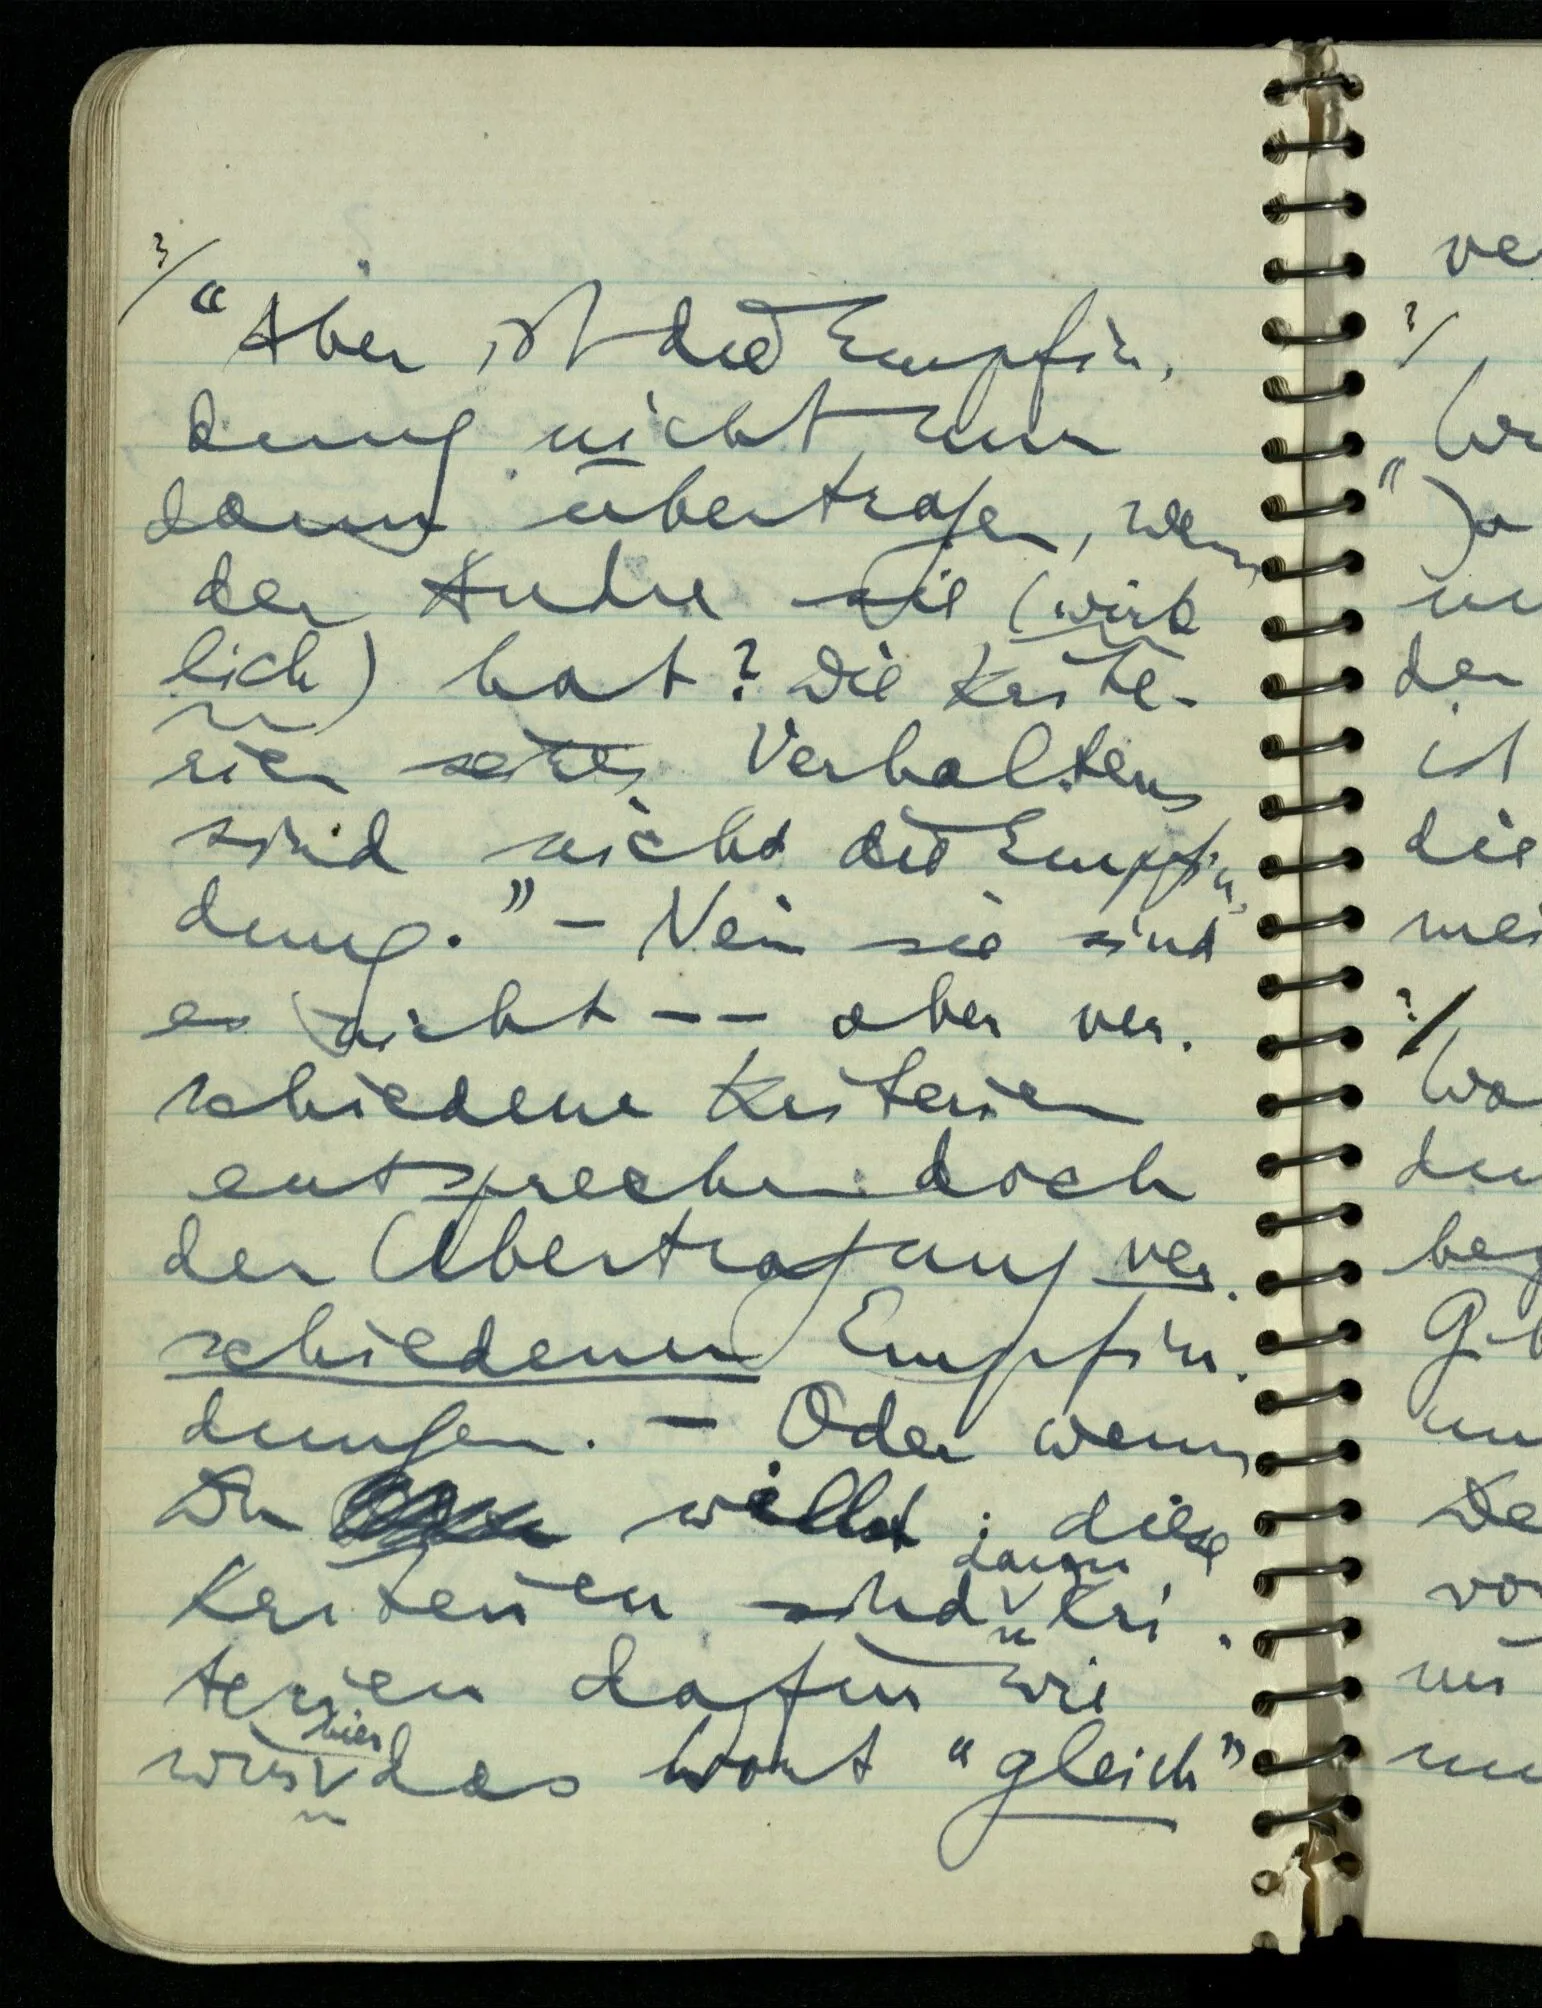 ?/
"Aber ist die Empfin-
dung nicht nur
dann übertragen, wenn
der Andre sie (wirk
lich) hat? Die Krite-
rien seines Verhaltens
sind nicht die Empfin-
dung." – Nein sie sind
es nicht -- aber ver-
schiedene Kriterien
entsprechen doch
der Übertragung ver-
schiedener Empfin-
dungen. – Oder wenn
Du willst: diese
dann
Kriterien sind Kri-
terien dafür wie
hier
wir das Wort "gleich"
ve
?/
ist
die
mei
?/